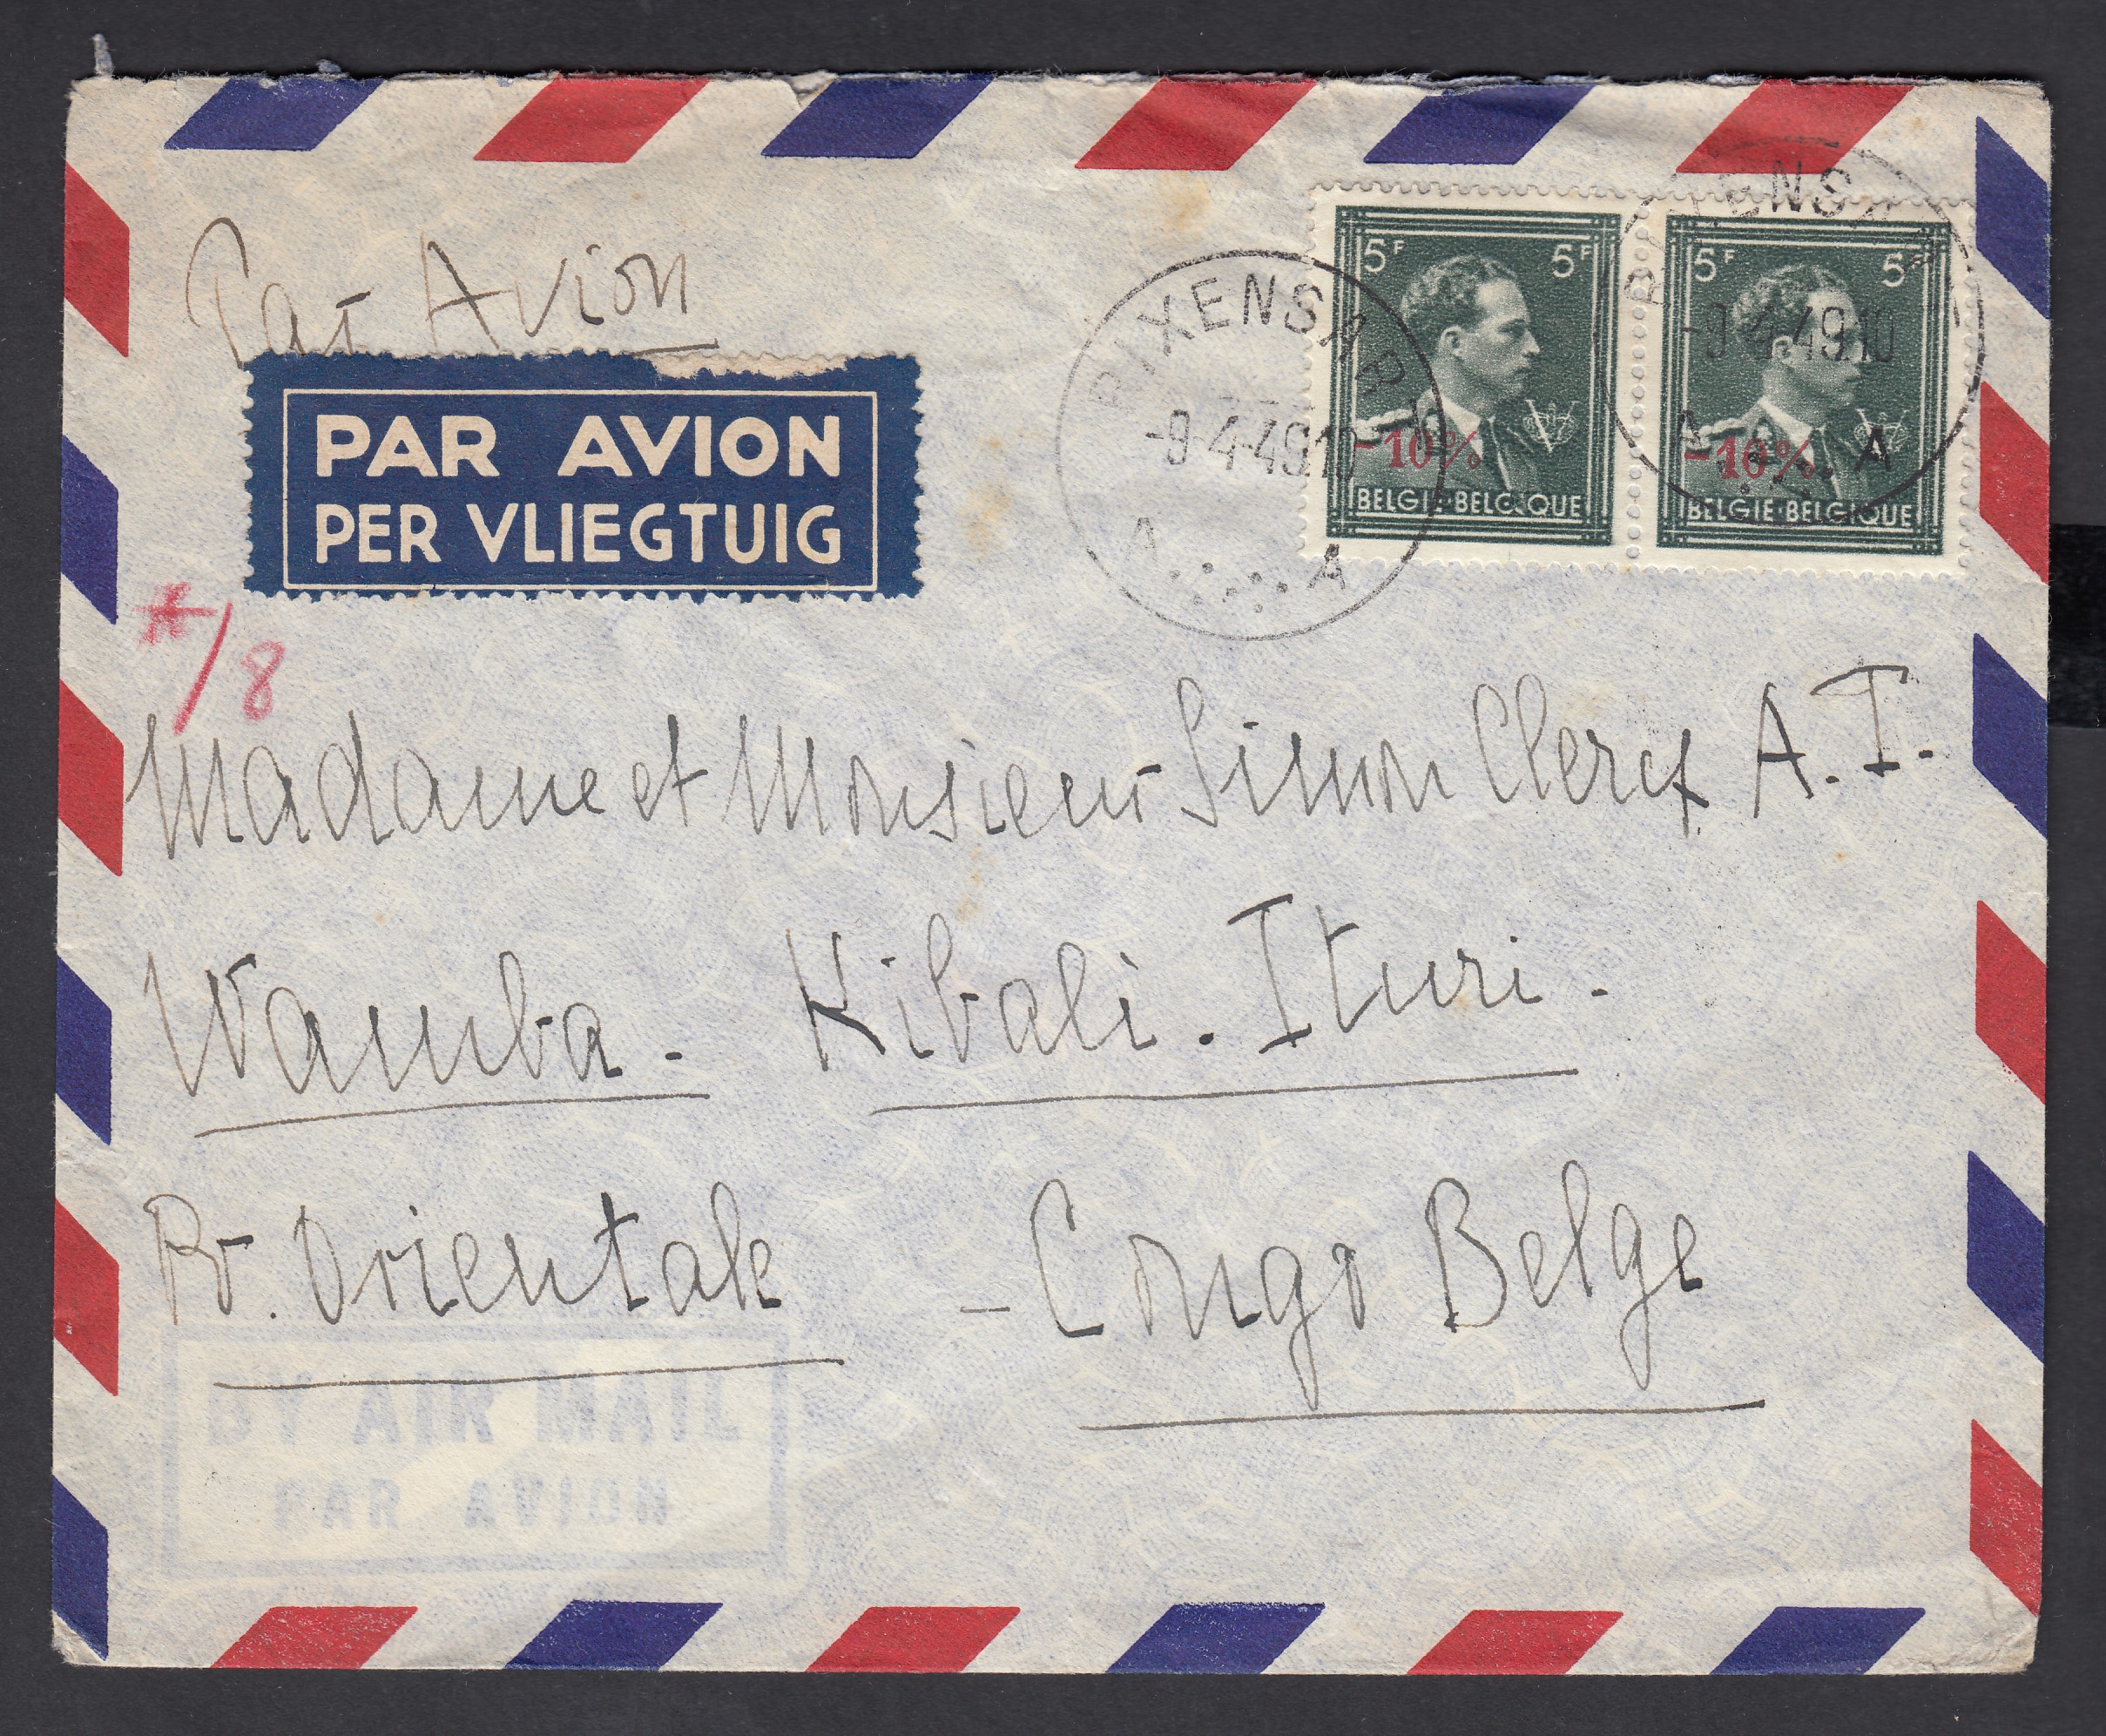 Par Avion
PAR AVION
PER VLIEGTUIG
RIXENSART
-9-4-49.10
A A
5F 5F
-10%
BELGIE·BELGIQUE
RIXENSART
-9-4-49.10
A A
5F 5F
-10%
BELGIE·BELGIQUE
*/8
Madame et Monsieur Simon Clerck A.I.
Wamba. Kibali. Ituri.
Pr. Orientale - Congo Belge
BY AIR MAIL
PAR AVION